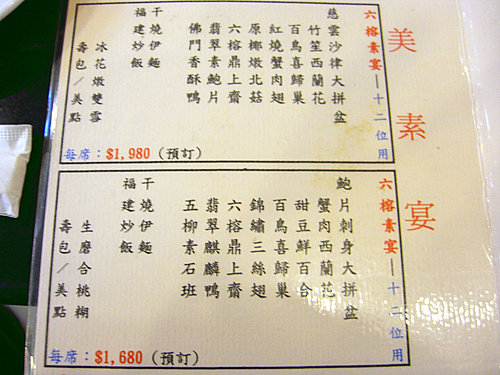 美素宴
六榕素宴—十二位用
慈雲沙律大拼盆
竹笙西蘭花
百鳥喜歸巢
紅燒蟹肉翅
原椰燉北菇
六榕鼎上齋
翡翠素鮑片
佛門香酥鴨
干燒伊麵
福建炒飯
冰花燉雙雪
壽包／美點
每席：$1,980 (預訂)
六榕素宴—十二位用
鮑片刺身大拼盆
蟹肉西蘭花
甜豆鮮百合
百鳥喜歸巢
錦繡三絲翅
六榕鼎上齋
翡翠麒麟鴨
五柳素石班
干燒伊麵
福建炒飯
生磨合桃糊
壽包／美點
每席：$1,680 (預訂)